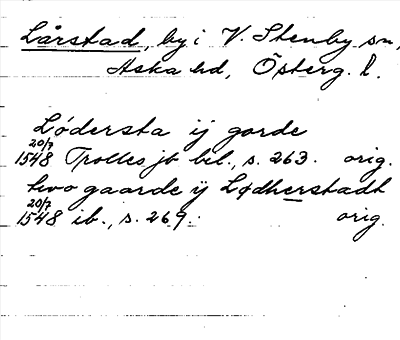 Lårstad, by i V. Stenby sn,
Aska hd, Österg. l.
Lødersta ij gorde
20/7 1548 Trolles jb bil., s. 263. orig.
two gaarde ij Lødherstadt
20/7 1548 ib., s. 269. orig.